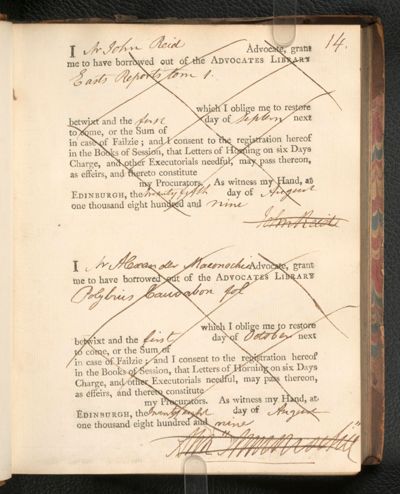 14.
I Mr John Reid Advocate, grant
me to have borrowed out of the ADVOCATES LIBRARY
Easts Reports tom 1.
which I oblige me to restore
betwixt and the first day of Septem next
to come, or the Sum of
in case of Failzie; and I consent to the registration hereof
in the Books of Session, that Letters of Horning on six Days
Charge, and other Executorials needful, may pass thereon,
as effeirs, and thereto constitute
my Procurators. As witness my Hand, at
EDINBURGH, the twenty fifth day of August
one thousand eight hundred and nine
John Reid
I Mr Alexander Maconochie Advocate, grant
me to have borrowed out of the ADVOCATES LIBRARY
Polybius Causabon fol
which I oblige me to restore
betwixt and the first day of October next
to come, or the Sum of
in case of Failzie; and I consent to the registration hereof
in the Books of Session, that Letters of Horning on six Days
Charge, and other Executorials needful, may pass thereon,
as effeirs, and thereto constitute
my Procurators. As witness my Hand, at
EDINBURGH, the twenty eight day of August
one thousand eight hundred and nine